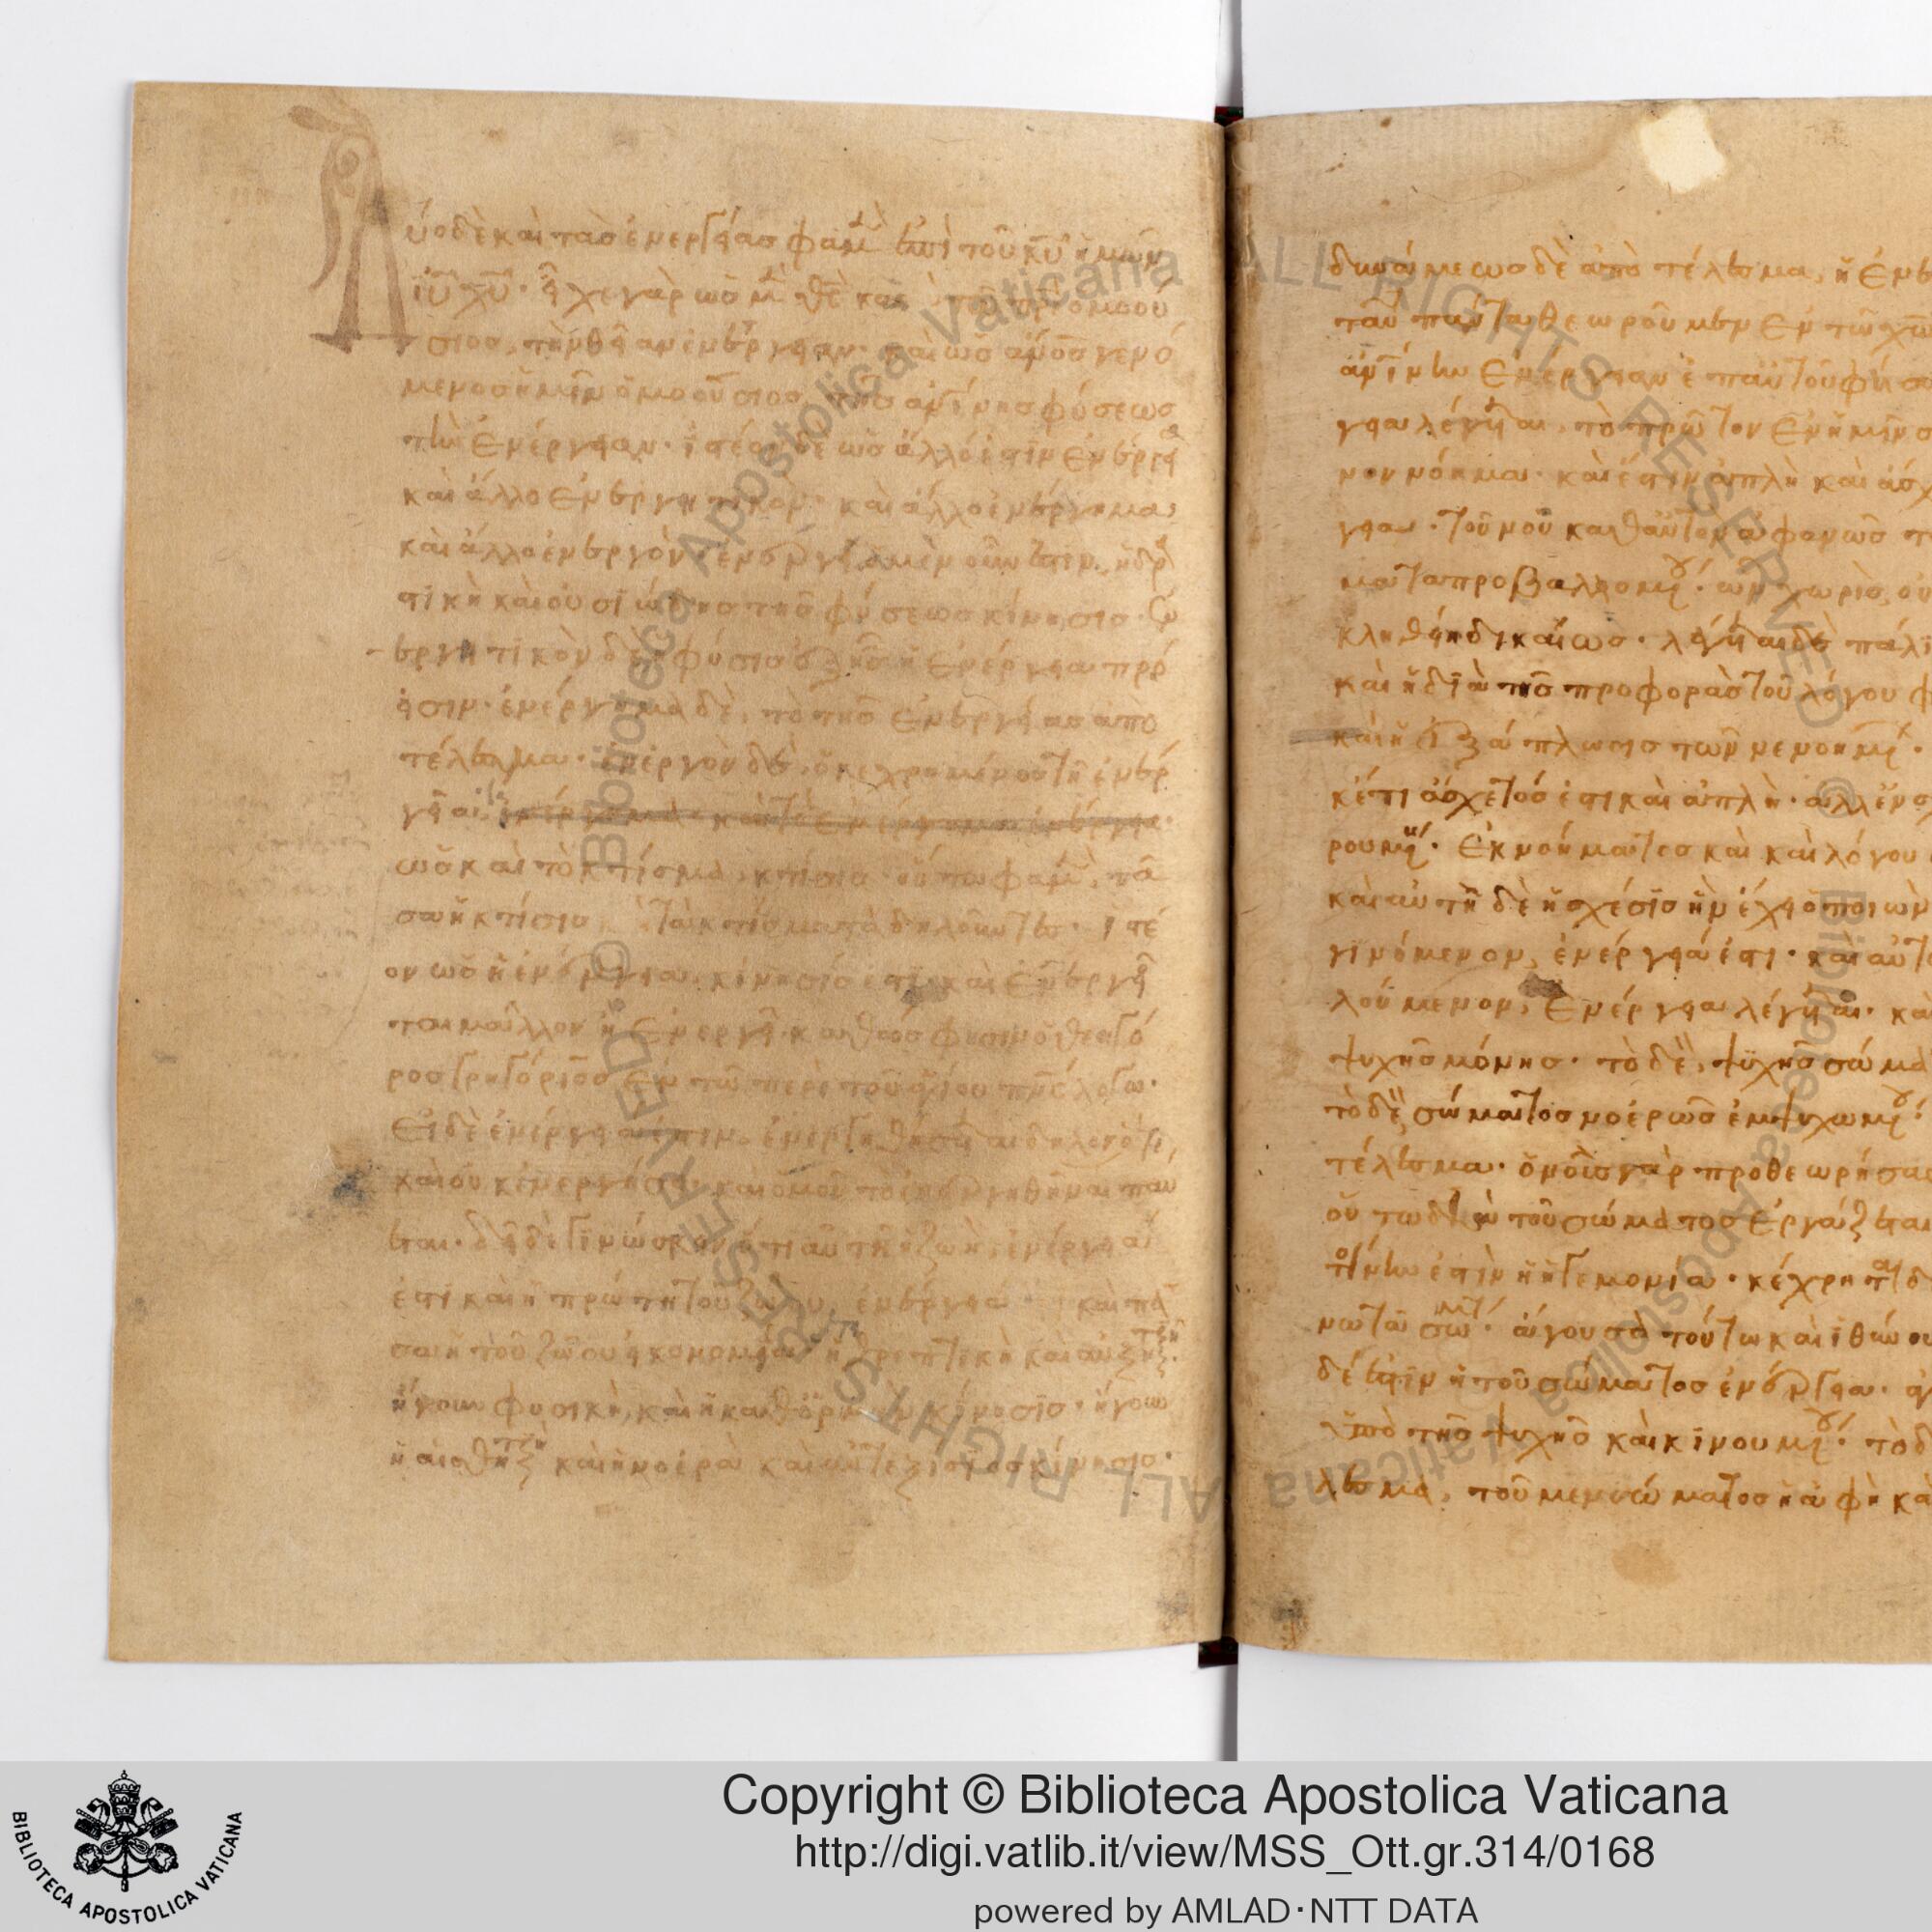 Δύο δὲ καὶ τὰς ἐνεργείας φαμὲν ἐπὶ τοῦ κυ ἡμῶν
ιυ χυ· εἶχε γὰρ ὡς μὲν θς καὶ τῷ πρι ὁμοού
σιος, τὴν θείαν ἐνέργειαν· καὶ ὡς ἀνος γενό
μενος καὶ ἡμῖν ὁμοούσιος, τῆς ἀνίνης φύσεως
τὴν ἐνέργειαν· ἰστέον δὲ ὡς ἄλλό ἐστιν ἐνέργεια
καὶ ἄλλο ἐνεργητικὸν· καὶ ἄλλο ἐνέργημα
καὶ ἄλλο ἐνεργῶν· ἐνέργεια μὲν οὖν ἐστιν, ἡ δρα
στικὴ καὶ οὐσιώδης τῆς φύσεως κίνησις· ἐν
εργητικὸν δὲ, ἡ φύσις ἐξ ἧς ἡ ἐνέργεια πρό
εισιν· ἐνέργημα δὲ, τὸ τῆς ἐνεργείας ἀπο
τέλεσμα· ἐνεργῶν δὲ, ὁ κεχρημένος τῇ ἐνερ
γείᾳ·
ὡς καὶ τὸ κτίσμα, κτίσις· οὕτω φαμὲν, πᾶ
σα ἡ κτίσις τὰ κτίσματα δηλοῦντες· ἰστέ
ον ὡς ἡ ἐνέργεια, κίνησίς ἐστι· καὶ ἐνεργεῖ
ται μᾶλλον ἢ ἐνεργεῖ· καθώς φησιν ὁ θεολό
γος γρηγόριος ἐν τῷ περὶ τοῦ ἁγίου πνς λόγῳ·
Εἰ δὲ ἐνέργεια ἐστιν, ἐνεργηθήσεται δηλονότι,
καὶ οὐκ ἐνεργήσει· καὶ ὁμοῦ τῷ ἐνεργηθῆναι παύ
εται· δεῖ δὲ γινώσκειν ὅτι αὐτὴ ἡ ζωὴ ἐνέργεια
ἐστι καὶ ἡ πρώτη τοῦ ζώου ἐνέργεια· καὶ πᾶ
σα ἡ τοῦ ζώου οἰκονομία· ἡ θρεπτικὴ καὶ αὐξητικὴ
ἤγουν φυσικὴ, καὶ ἡ καθ ὁρμὴν κίνησις· ἤγουν
ἡ αἰσθητικὴ καὶ ἡ νοερὰ καὶ αὐτεξούσιος κίνησις·
δυνάμεως δὲ ἀποτέλεσμα, ἡ ἐνέρ
ταῦτα πάντα θεωροῦμεν ἐν τῷ χω
ἀνίνην ἐνέργειαν ἐπ αὐτοῦ φήσ
γεια λέγεται, τὸ πρῶτον ἐν ἡμῖν σ
μον νόημα· καὶ ἔστιν ἁπλῆ καὶ ἄσχ
γεια· τοῦ νοῦ καθ αὑτὸν ἀφανῶς τ
ματα προβαλλομένου· ὧν χωρὶς οὐ
κληθείη δικαίως· λέγεται δὲ πάλι
καὶ ἡ διὰ τῆς προφορᾶς τοῦ λόγου φ
καὶ ἡ ἐξάπλωσις τῶν νενοημένων·
κέτι ἄσχετός ἐστι καὶ ἁπλῆ· ἀλλ ἐν σ
ρουμένη· ἐκ νοήματος καὶ λόγου
καὶ αὐτὴ δὲ ἡ σχέσις ἣν ἔχει ὁ ποιῶν
γινόμενον, ἐνέργειά ἐστι· καὶ αὐτὸ
λούμενον, ἐνέργεια λέγεται· κα
ψυχῆς μόνης· τὸ δὲ, ψυχῆς σώμα
τὸ δὲ, σώματος νοερῶς ἐμψυχωμένου·
τέλεσμα· ὁ νοῦς γὰρ προθεωρήσας
οὕτω διὰ τοῦ σώματος ἐργάζεται
τοίνυν ἐστὶν ἡ ἡγεμονία· κέχρηται δ
νω τῷ σώματι· ἄγουσα τοῦτο καὶ ἰθύνου
δέ ἐστιν ἡ τοῦ σώματος ἐνέργεια· ἀγ
ὑπὸ τῆς ψυχῆς καὶ κινουμένου· τὸ δ
λεσμα, τοῦ μὲν σώματος ἡ ἁφὴ κα
Biblioteca Apostolica Vaticana ALL RIGHTS RESERVED ©
BIBLIOTECA APOSTOLICA VATICANA
Copyright © Biblioteca Apostolica Vaticana
http://digi.vatlib.it/view/MSS_Ott.gr.314/0168
powered by AMLAD·NTT DATA